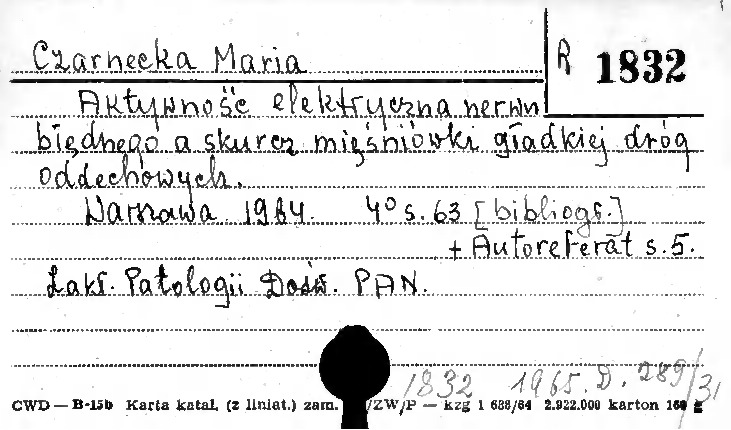 Czarnecka Maria
R 1832
Aktywność elektryczna nerwu
błędnego a skurcz mięśniówki gładkiej dróg
oddechowych.
Warszawa 1964. 4° s. 63 [bibliogr.]
+ Autoreferat s. 5.
Zakł. Patologii Dośw. PAN.
1832 1965. D. 289/31
CWD — B-15b Karta katal. (z liniat.) zam. /ZW/P — kzg 1 688/64 2.922.000 karton 160 g